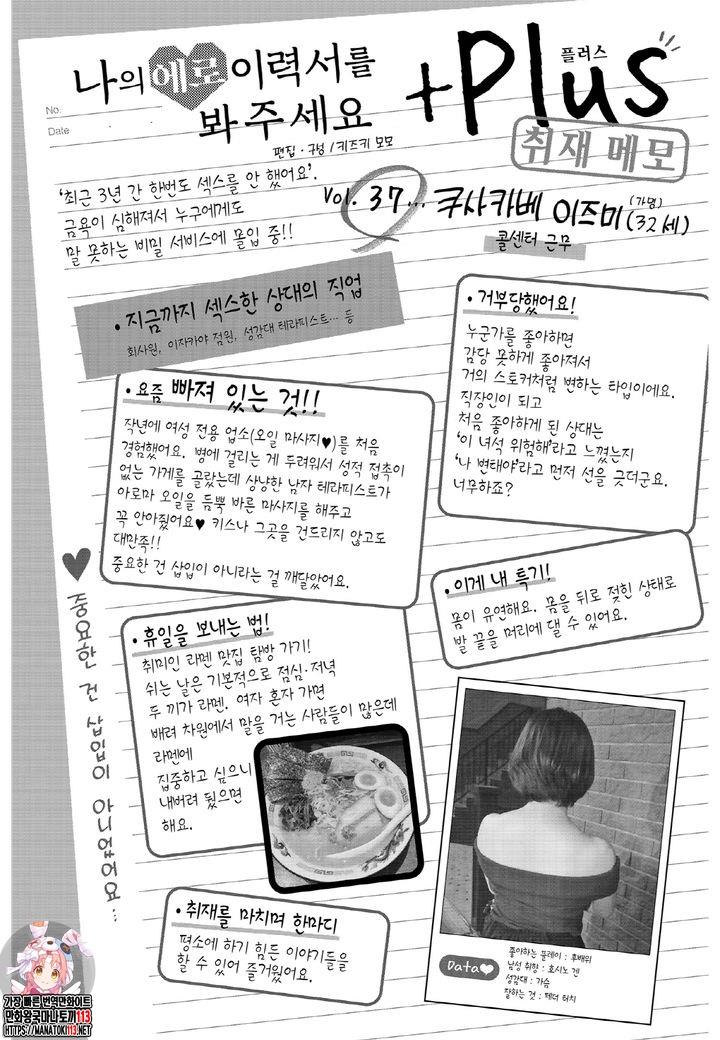 No.
Date
나의 에로 이력서를
봐주세요
+Plus
플러스
취재 메모
편집·구성 / 키즈키 모모
'최근 3년 간 한번도 섹스를 안 했어요'.
금욕이 심해져서 누구에게도
말 못하는 비밀 서비스에 몰입 중!!
Vol. 37... 쿠사카베 이즈미 (가명) (32세)
콜센터 근무
• 지금까지 섹스한 상대의 직업
회사원, 이자카야 점원, 성감대 테라피스트… 등
• 거부당했어요!
누군가를 좋아하면
감당 못하게 좋아져서
거의 스토커처럼 변하는 타입이에요.
직장인이 되고
처음 좋아하게 된 상대는
'이 녀석 위험해'라고 느꼈는지
'나 변태야'라고 먼저 선을 긋더군요.
너무하죠?
• 요즘 빠져 있는 것!!
작년에 여성 전용 업소(오일 마사지♥)를 처음
경험했어요. 병에 걸리는 게 두려워서 성적 접촉이
없는 가게를 골랐는데 상냥한 남자 테라피스트가
아로마 오일을 듬뿍 바른 마사지를 해주고
꼭 안아줬어요♥ 키스나 그곳을 건드리지 않고도
대만족!!
중요한 건 삽입이 아니라는 걸 깨달았어요.
• 이게 내 특기!
몸이 유연해요. 몸을 뒤로 젖힌 상태로
발 끝을 머리에 댈 수 있어요.
♥ 중요한 건 삽입이 아니었어요…
• 휴일을 보내는 법!
취미인 라멘 맛집 탐방 가기!
쉬는 날은 기본적으로 점심·저녁
두 끼가 라멘. 여자 혼자 가면
배려 차원에서 말을 거는 사람들이 많은데
라멘에
집중하고 싶으니
내버려 뒀으면
해요.
• 취재를 마치며 한마디
평소에 하기 힘든 이야기들을
할 수 있어 즐거웠어요.
Data♥
좋아하는 플레이 : 후배위
남성 취향 : 호시노 겐
성감대 : 가슴
잘하는 것 : 페더 터치
가장 빠른 번역만화이트
만화왕국마나토끼113
HTTPS://MANATOKI113.NET